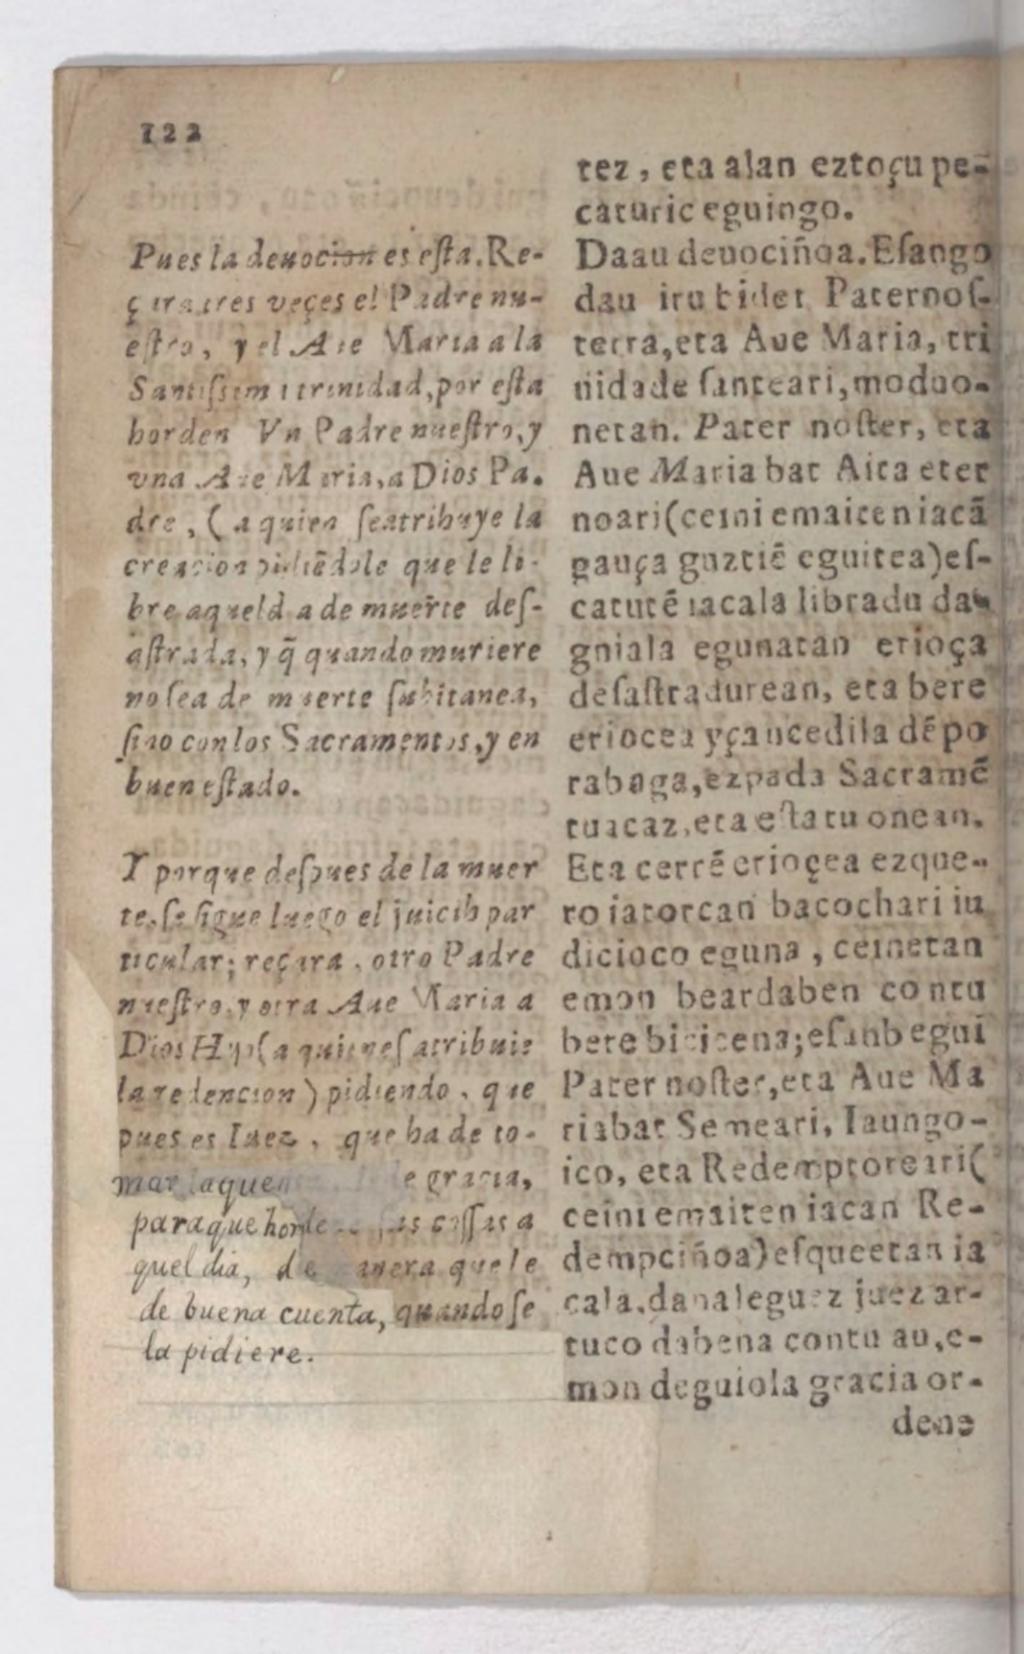 122
Pues la deuocion es eſta. Re-
çira tres veçes el Padre nu-
eſtro, y el Aue Maria a la
Santiſsima trinidad, por eſta
horden Vn Padre nueſtro, y
vna Aue Maria, a Dios Pa.
dre, (a quien ſeatribuye la
creacion pidiẽdole que le li-
bre aquel dia de muerte deſ-
aſtrada, y q̃ quando muriere
no ſea de muerte ſubitanea,
ſino con los Sacramentos, y en
buen eſtado.
Y porque deſpues de la muer
te, ſe ſigue luego el juicio par
ticular; reçara, otro Padre
nueſtro, y otra Aue Maria a
Dios Hyo (a quien eſ atribuie
la redencion) pidiendo, que
pues es Iuez, que ha de to-
mar la quen gracia,
para que horde ſus coſſas a
quel dia, de manera que le
de buena cuenta, quando ſe
la pidiere.
tez, eta alan eztoçu pe-
caturic eguingo.
Daau deuociñoa. Eſango
dau iru bider Paternoſ-
terra, eta Aue Maria, tri
nidade ſanteari, moduo-
netan. Pater noſter, eta
Aue Maria bat Aita eter
noari (ceini emaiten iacã
gauça guztiẽ eguitea) eſ-
catutẽ iacala libradu da-
gniala egunatan erioça
deſaſtradurean, eta bere
eriocea yçancedila dẽpo
rabaga, ezpada Sacramẽ
tuacaz, eta eſtatu onean.
Eta cerrẽ erioçea ezque-
ro iatorcan bacochari iu
dicioco eguna, ceinetan
emon beardaben contu
bere bicicena; eſanb egui
Pater noſter, eta Aue Ma
riabat Semeari, Iaungo-
ico, eta Redemptoreari (
ceini emaiten iacan Re-
dempciñoa) eſqueetan ia
cala, danaleguez juez ar-
tuco dabena contu au, e-
mon deguiola gracia or-
dene